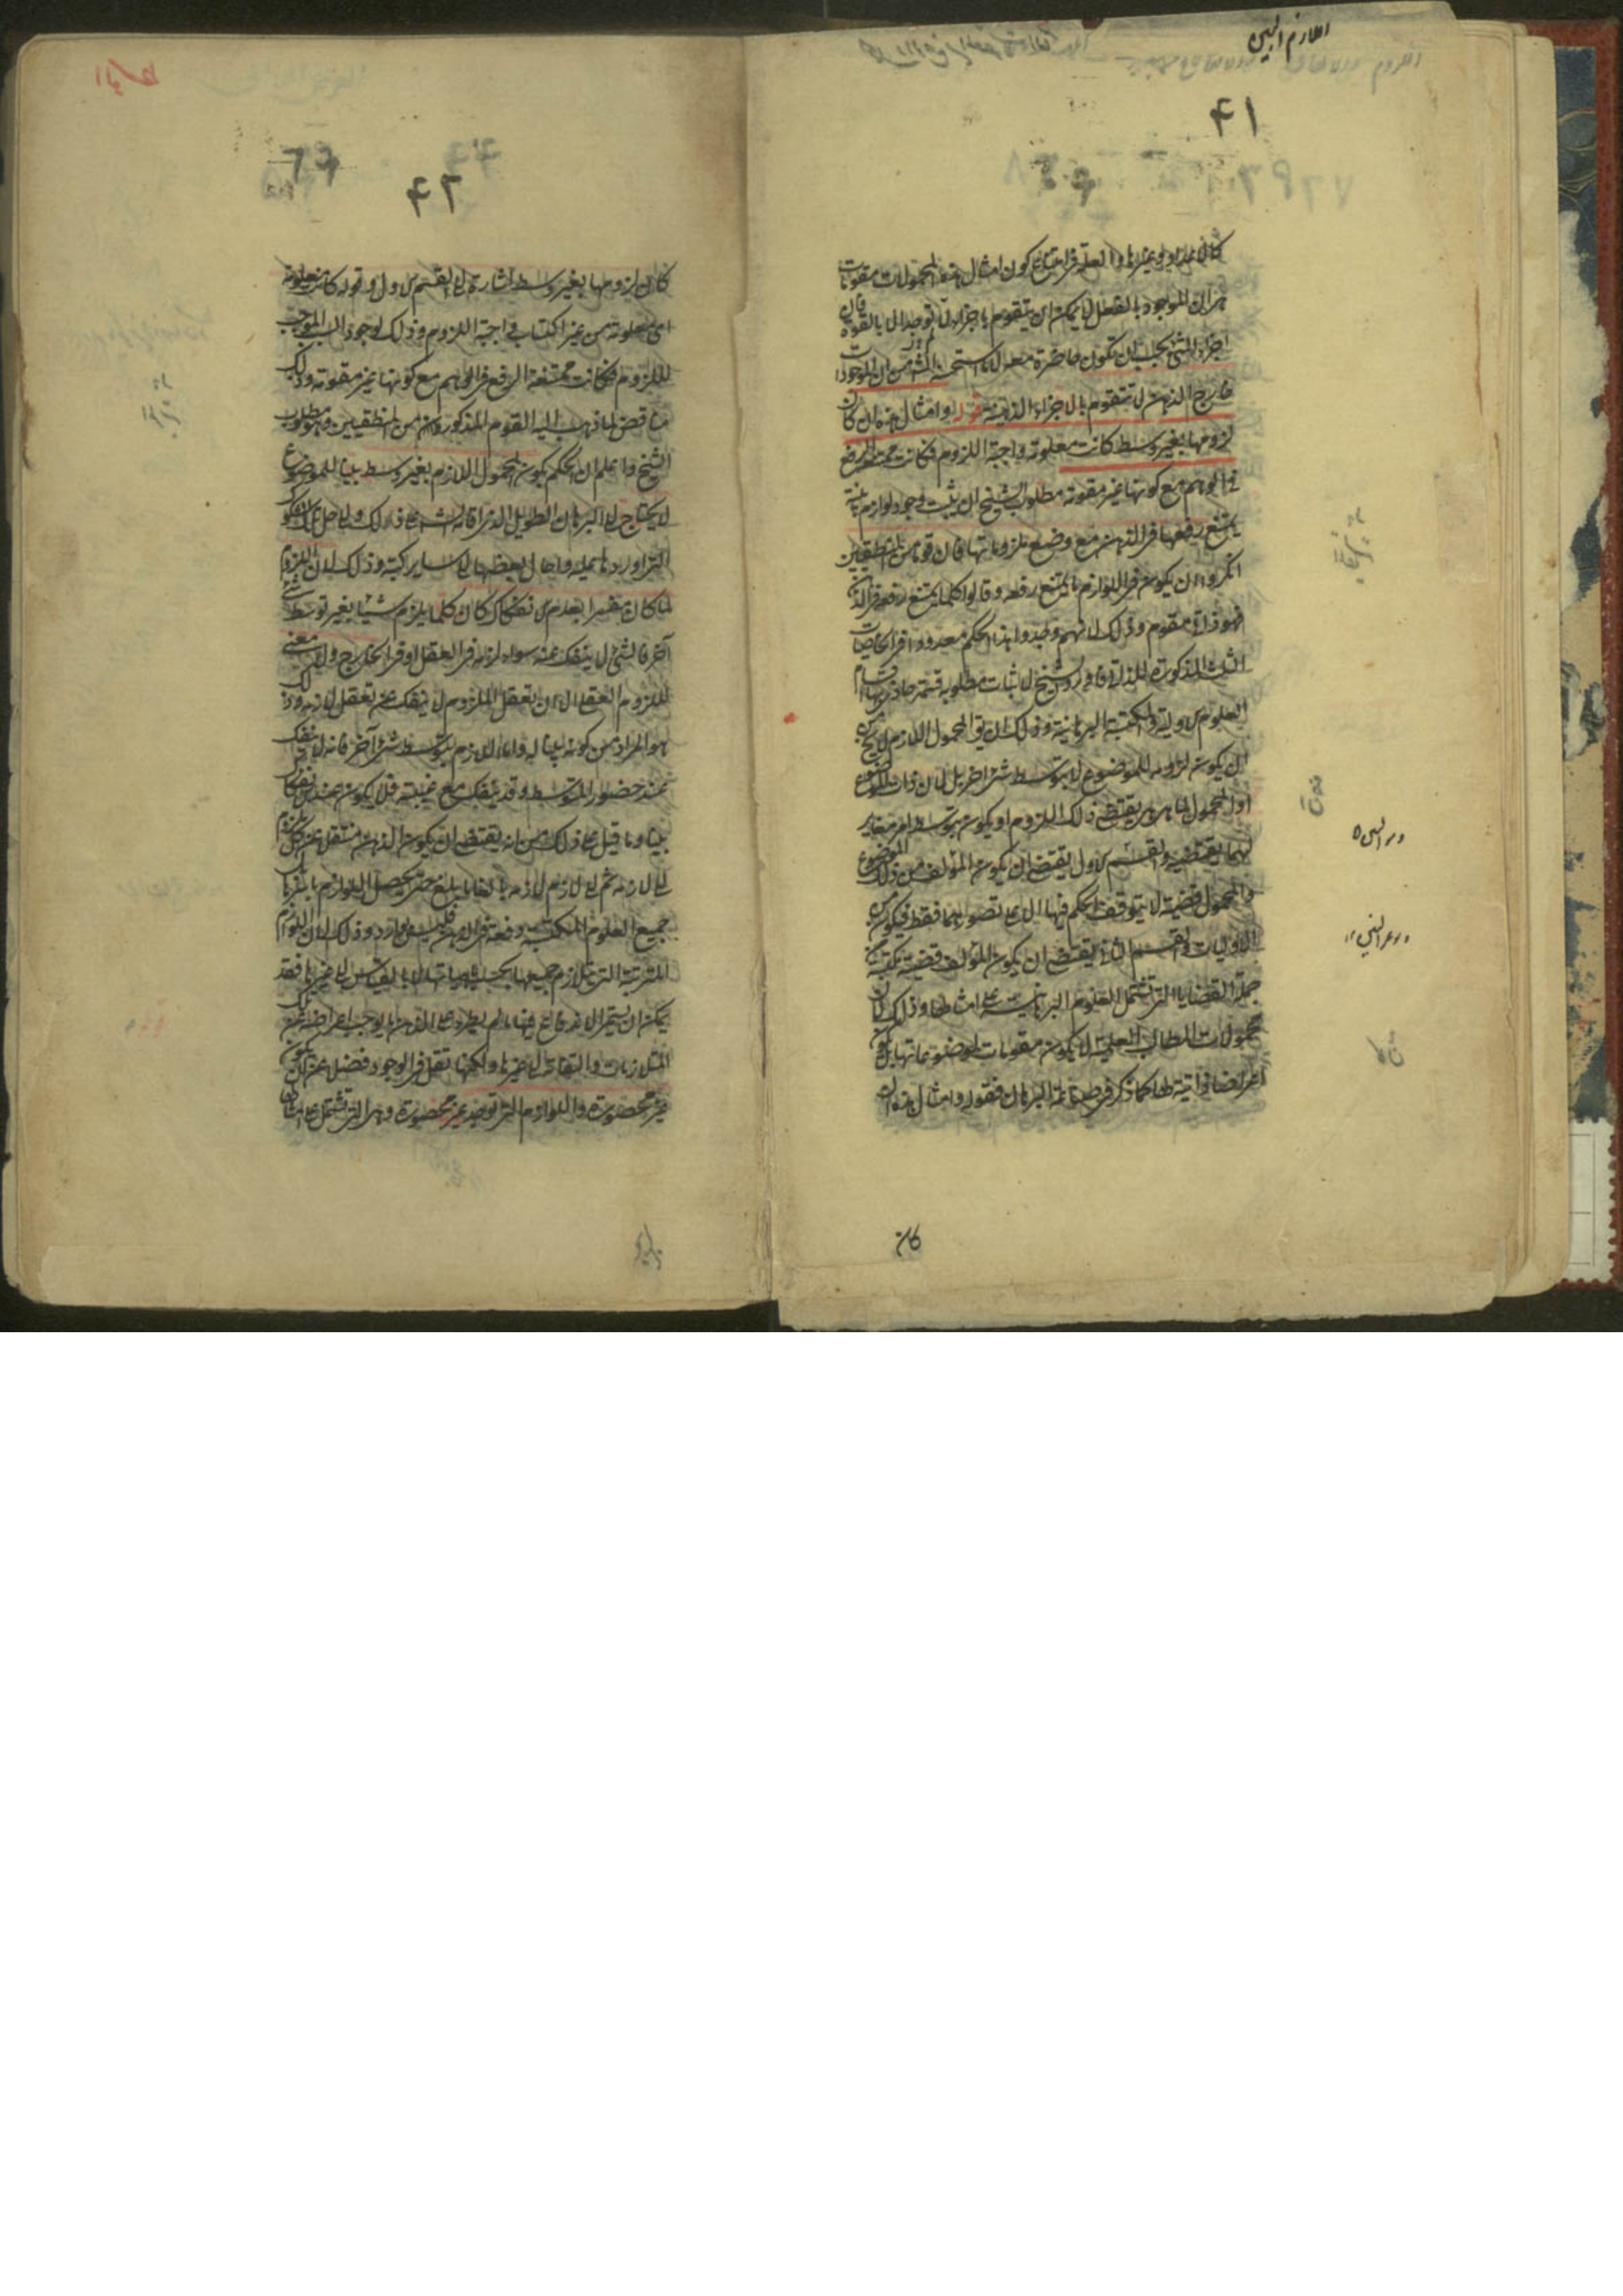 اللازم البين
٤١
كان عددا او غيرها والعلة فى امتناع كون امثال هذه المحمولات مقومات
هى ان الموجود بالفعل لا يمكن ان يتقوم باجزاء لا توجد الا بالقوة فان
اجزاء الشئ يجب ان تكون حاضرة معه
خارج الذهن لا يتقوم بالاجزاء الذهنية قوله وامثال هذه ان كان
لزومها بغير وسط كانت معلومة واجبة اللزوم فكانت ممتنعة الرفع
فى الوهم مع كونها غير مقومة مطلوب الشيخ ان يثبت وجود لوازم بينة
يمتنع رفعها فى الذهن مع وضع ملزوماتها فان قوما من المنطقيين
انكروا ان يكون فى اللوازم ما يمتنع رفعه وقالوا كلما يمتنع رفعه فى الذهن
فهو ذاتى مقوم وذلك لانهم وجدوا هذا الحكم معدودا فى الخاصيات
الثلث المذكورة للذاتى فاورد الشيخ لاثبات مطلوبه قسمة حاذى بها اقسام
العلوم الاولية والمكتسبة البرهانية وذلك ان يق المحمول اللازم لا يخ من
ان يكون لزومه للموضوع لا بتوسط شئ اخر بل لان ذات الموضوع
او المحمول لما هى هى يقتضى ذلك اللزوم او يكون بتوسط امر مغاير
لهما يقتضيه والقسم الاول يقتضى ان يكون المؤلف من ذلك الموضوع
والمحمول قضية لا يتوقف الحكم فيها الا على تصورهما فقط فيكون من
الاوليات والقسم الثانى يقتضى ان يكون المؤلف قضية مكتسبة من
جملة القضايا التى تشتمل العلوم البرهانية على امثالها وذلك لان
محمولات المطالب العلمية لا يكون مقومات لموضوعاتها بل يكون
اعراضا ذاتية لها كما ذكر فى صناعة البرهان فقوله وامثال هذه ان
كان
٤٢
كان لزومها بغير وسط اشارة الى القسم الاول وقوله كانت معلومة
اى معلومة من غير اكتساب واجبة اللزوم وذلك لوجود السبب الموجب
للزوم فكانت ممتنعة الرفع فى الوهم مع كونها غير مقومة وذلك
مناقض لما ذهب اليه القوم المذكورون من المنطقيين وهو مطلوب
الشيخ واعلم ان الحكم بكون المحمول اللازم بغير وسط بينا للموضوع
لا يحتاج الى البرهان الطويل الذى اقامه الشارح على ذلك والى حل الشكوك
التى اوردها عليه واحال بعضها الى ساير كتبه وذلك لان اللزوم
لما كان مفسرا بعدم الانفكاك كان كلما يلزم شيئا بغير توسط شئ
آخر فالشئ لا ينفك عنه سواء لزمه فى العقل او فى الخارج ولا معنى
للزوم العقلى الا ان تعقل الملزوم لا ينفك عن تعقل لازمه وذلك
هو المراد من كونه بينا له واما اللازم بتوسط شئ آخر فانه لا ينفك
عند حضور المتوسط وقد ينفك مع غيبته فلا يكون عند الانفكاك
بينا وما قيل على ذلك من انه يقتضى ان يكون الذهن منتقلا عن كل ملزوم
الى لازمه ثم الى لازم لازمه بالغا ما بلغ حتى يحصل اللوازم باسرها بل
جميع العلوم المكتسبة دفعة فى الذهن فليس بوارد وذلك لان اللوازم
المترتبة التى يتلازم جميعها بحسب ماهياتها لا بالقياس الى غيرها فقد
يمكن ان يستمر الاندفاع فيها ما لم يطرء على الذهن ما يوجب اعراضه عن تلك
المتلازمات والتفاته الى غيرها ولكنها تقل فى الوجود فضلا عن ان يكون
غير محصورة واللوازم التى توجد غير محصورة وهى التى تشتمل على امثالها